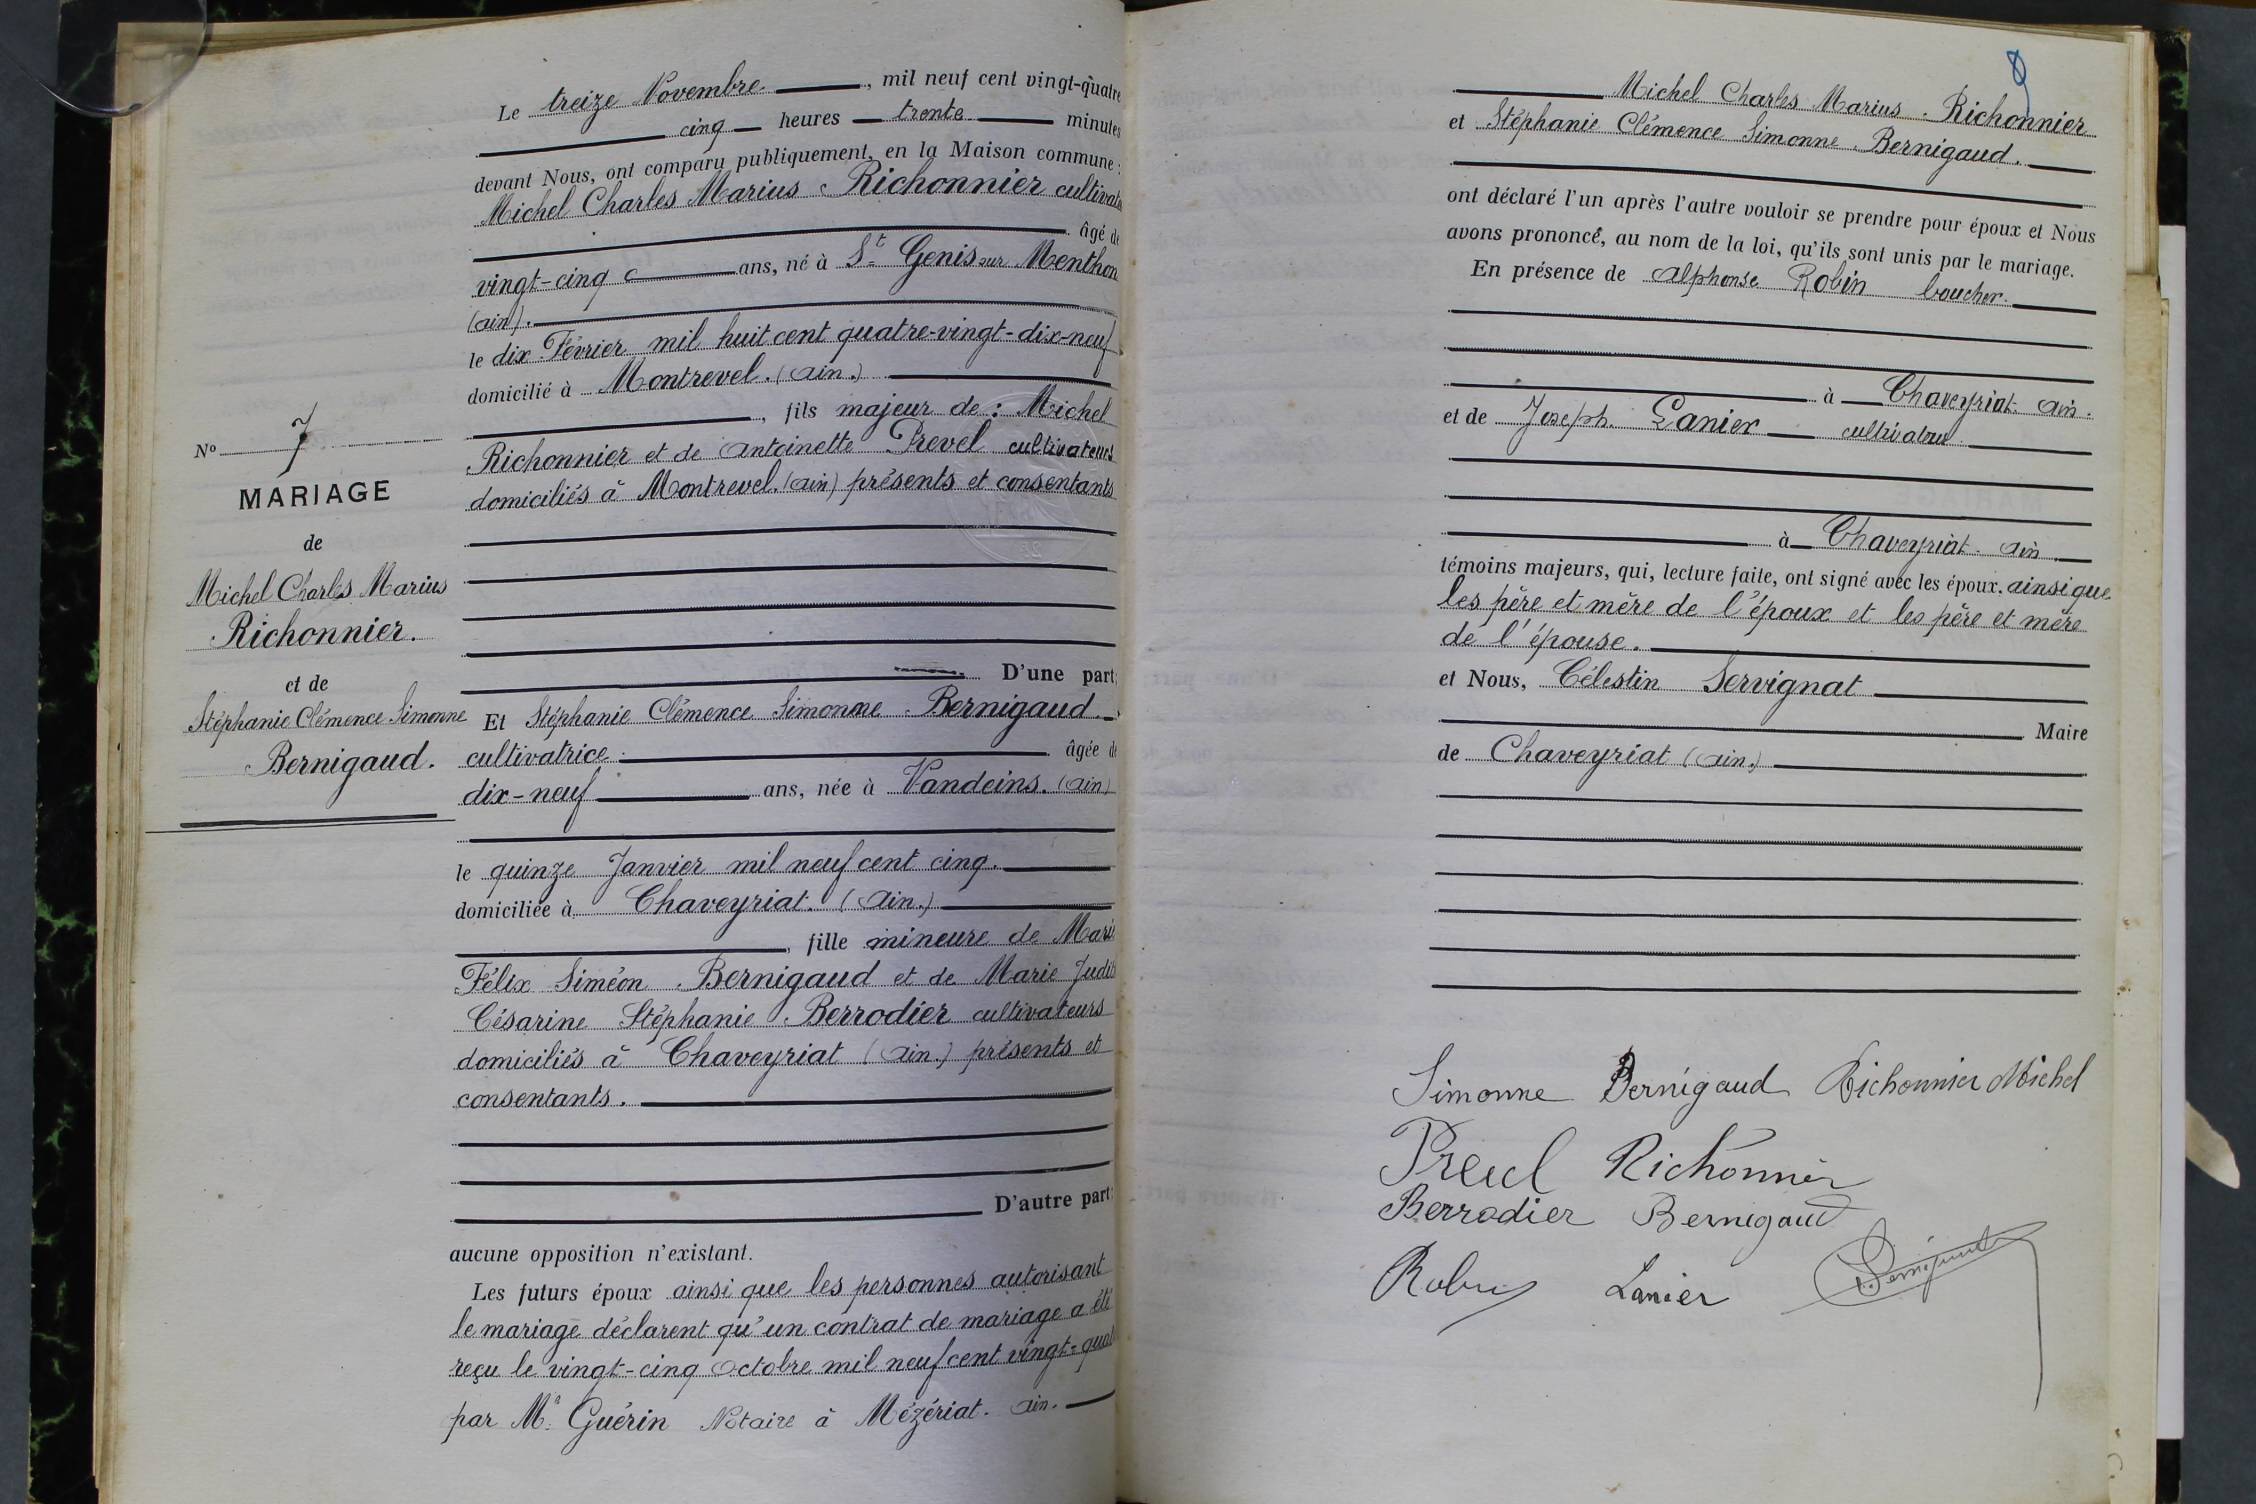 Le treize Novembre, mil neuf cent vingt-quatre
cinq heures trente minutes
devant Nous, ont comparu publiquement, en la Maison commune :
Michel Charles Marius Richonnier cultivat
âgé de
vingt-cinq ans, né à St Genis sur Menthon
(Ain).
le dix Février mil huit cent quatre-vingt-dix-neuf
domicilié à Montrevel. (Ain.)
, fils majeur de : Michel
Richonnier et de Antoinette Prevel cultivateurs
domiciliés à Montrevel. (Ain) présents et consentants
D'une part;
Et Stéphanie Clémence Simonne Bernigaud.
cultivatrice. âgée de
dix-neuf ans, née à Vandeins. (Ain)
le quinze Janvier mil neuf cent cinq.
domiciliée à Chaveyriat. (Ain.)
, fille mineure de Marie
Félix Siméon Bernigaud et de Marie Judi
Césarine Stéphanie Berrodier cultivateurs
domiciliés à Chaveyriat (Ain.) présents et
consentants.
D'autre part;
aucune opposition n'existant.
Les futurs époux ainsi que les personnes autorisant
le mariage déclarent qu'un contrat de mariage a été
reçu le vingt-cinq Octobre mil neuf cent vingt-quat
par Me Guérin Notaire à Mézériat. Ain.
No 7
MARIAGE
de
Michel Charles Marius
Richonnier.
et de
Stéphanie Clémence Simonne
Bernigaud.
8
Michel Charles Marius Richonnier
et Stéphanie Clémence Simonne Bernigaud.
ont déclaré l'un après l'autre vouloir se prendre pour époux et Nous
avons prononcé, au nom de la loi, qu'ils sont unis par le mariage.
En présence de Alphonse Robin boucher.
à Chaveyriat Ain.
et de Joseph Lanier cultivateur
à Chaveyriat. Ain.
témoins majeurs, qui, lecture faite, ont signé avec les époux. ainsi que
les père et mère de l'époux et les père et mère
de l'épouse.
et Nous, Célestin Servignat
Maire
de Chaveyriat (Ain.)
Simonne Bernigaud Richonnier Michel
Prevel Richonnier
Berrodier Bernigaud
Robin Lanier Servignat